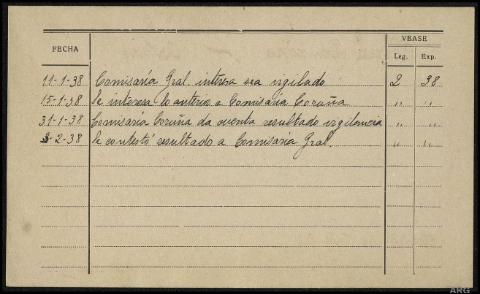 VEASE
FECHA Leg. Exp.
11-1-38 Comisaría Gral. interesa sea vigilado 2 38
15-1-38 Se interesa lo anterior a Comisaría Coruña " "
31-1-38 Comisaría Coruña da cuenta resultado vigilancia " "
3-2-38 Se contestó resultado a Comisaría Gral. " "
ARG